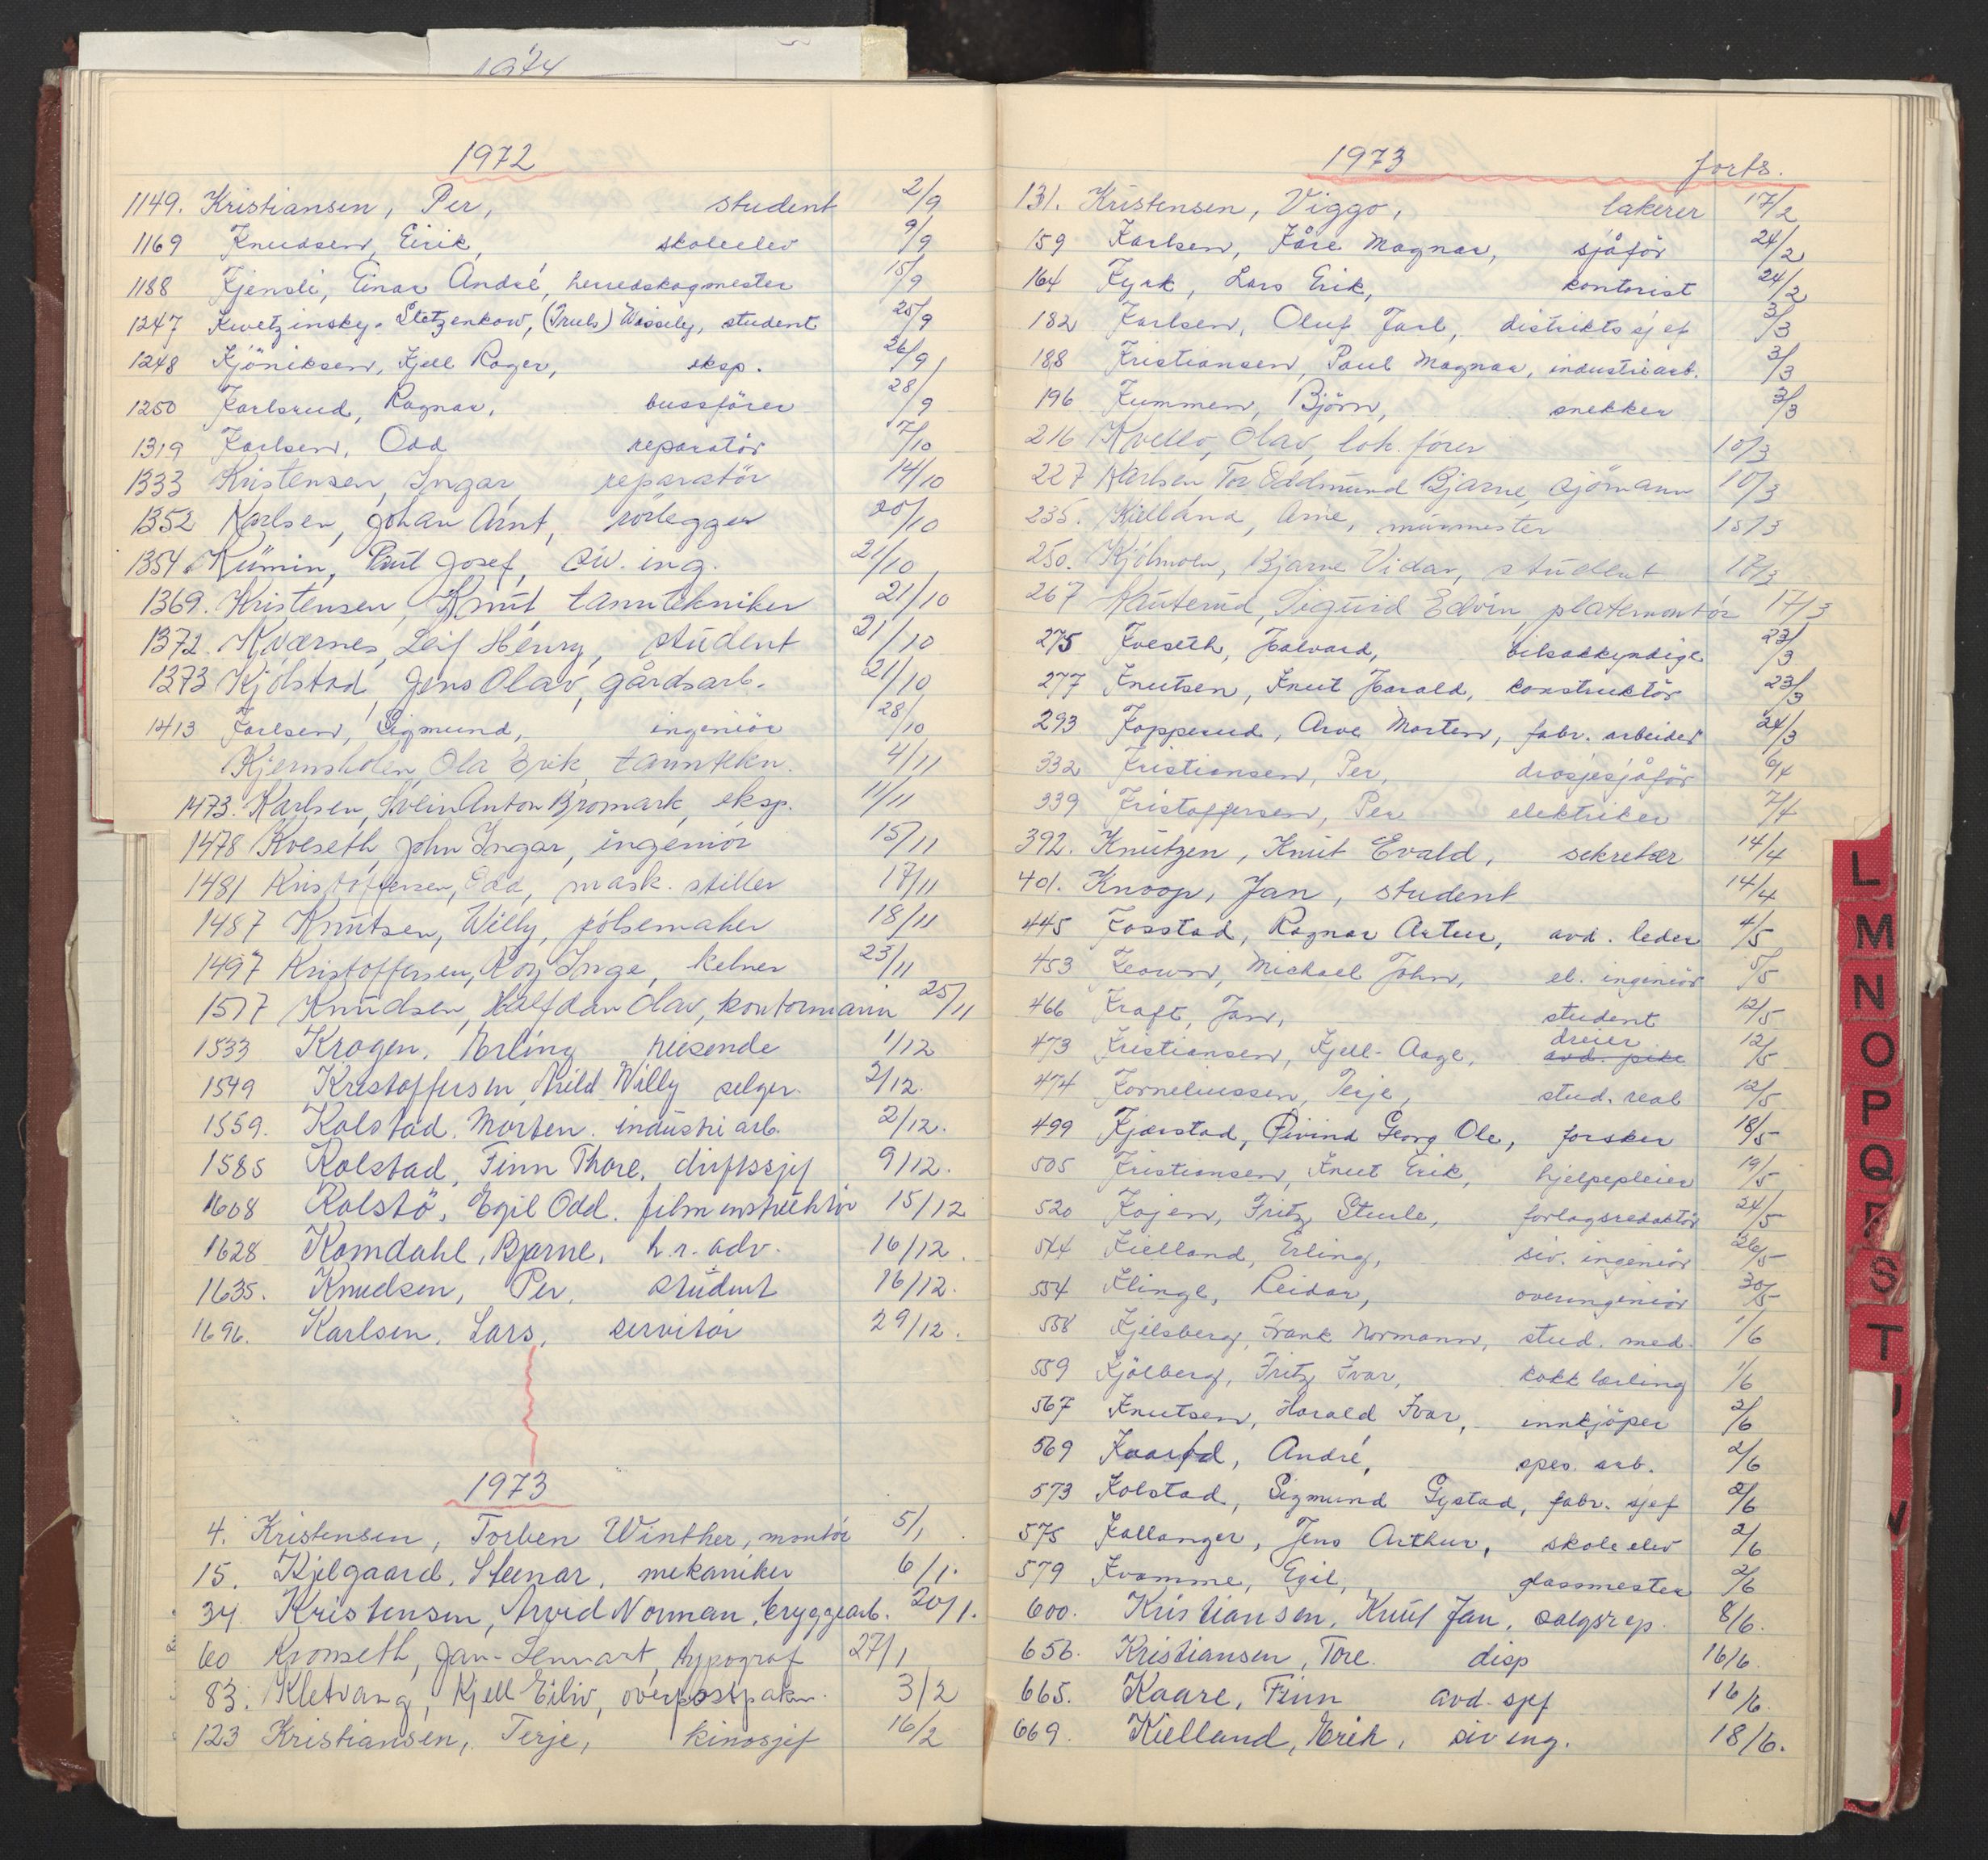 1974
1972
1149. Kristiansen, Per, student 2/9
1169 Knudsen, Eirik, skoleelev 9/9
1188 Kjensli, Einar André, herredskogmester 15/9
1247 Kwetzinsky-Stetzenkow, (Truls) Wassily, student 25/9
1248 Kjöniksen, Kjell Roger, eksp. 26/9
1250 Karlsrud, Ragnar, bussförer 28/9
1319 Karlsen, Odd reparatör 7/10
1333 Kristensen, Ingar, reparatör 14/10
1352 Karlsen, Johan Arnt, rörlegger 20/10
1354. Kümin, Paul Josef, siv. ing. 21/10
1369. Kristensen, Knut tanntekniker 21/10
1372. Kværnes, Leif Henry, student 21/10
1373 Kjölstad, Jens Olav, gårdsarb. 21/10
1413 Karlsen, Sigmund, ingeniör 28/10
Kjernsholen, Ola Erik, tanntekn. 4/11
1473. Karlsen, Anton Bromark, eksp. 11/11
1478 Kveseth, John Ingar, ingeniör 15/11
1481 Kristoffersen, Odd, mask. stiller 17/11
1487 Knutsen, Willy, pölsemaker 18/11
1497 Kristoffersen, Roy Inge, kelner 23/11
1517 Knudsen, Halfdan Olav, kontormann 25/11
1533 Krogen, Erling reisende 1/12
1549 Kristoffersen, Arild Willy selger. 2/12.
1559. Kolstad, Morten. industriarb. 2/12.
1585 Kolstad, Finn Thore, driftssjef 9/12.
1608 Kolstö, Egil Odd. filminstruktör 15/12
1628 Komdahl, Bjarne, h.r. adv. 16/12.
1635. Knudsen, Per, student 16/12.
1696. Karlsen, Lars, servitör 29/12.
1973
4. Kristensen, Torben Winther, montör 5/1
15. Kjelgaard, Steinar, mekaniker 6/1.
34 Kristensen, Arvid Norman, bryggearb. 20/1.
60 Kromseth, Jan-Lennart, typograf 27/1
83. Kletvang, Kjell Eiliv, overpostpakm. 3/2
123 Kristiansen, Terje, kinosjef 16/2
1973 forts.
131. Kristensen, Viggo, lakerer 17/2
159 Karlsen, Kåre Magnar, sjåför 24/2
164 Kyrk, Lars Erik, kontorist 24/2
182 Karlsen, Oluf Jarl, distriktssjef 3/3
188 Kristiansen, Paul Magnar, industriarb. 3/3
196 Kummen, Björn, snekker 3/3
216 Kvello, Olav, lok. förer 10/3
227 Karlsen, Tor Oddmund Bjarne, sjömann 10/3
235. Kielland, Arne, murmester 15/3
250. Kjölmoen, Bjarne Vidar, student 17/3
267 Kauterud, Sigurd Edvin, platemontör 17/3
275 Kveseth, Halvard, bilsakkyndige 23/3
277 Knutsen, Knut Harald, konstruktör 23/3
293 Kopperud, Arve Morten, fabr. arbeider 24/3
332 Kristiansen, Per, drosjesjåför 6/4
339 Kristoffersen, Per elektriker 7/4
392. Knutzen, Knut Evald, sekretær 14/4
401. Knoop, Jan, student 14/4
445 Kosstad, Ragnar Artur, avd. leder 4/5
453 Keown, Michael John, el. ingeniör 5/5
466 Kraft, Jan, student 12/5
473 Kristiansen, Kjell-Aage, dreier 12/5
474 Korneliussen, Terje, stud. real 12/5
499 Kjærstad, Øivind Georg Ole, forsker 18/5
505 Kristiansen, Knut Erik, hjelpepleier 19/5
520 Kojen, Fritz Sturle, forlagsredaktör 24/5
544 Kielland, Erling, siv. ingeniör 26/5
554 Klinge, Reidar, overingeniör 30/5
558 Kjelsberg, Frank Normann, stud. med. 1/6
559 Kjölberg, Fritz Ivar, kokk lærling 1/6
567 Knutsen, Harald Ivar, innkjöper 2/6
569 André, spes. arb. 2/6
573 Kolstad, Sigmund Gystad, fabr. sjef 2/6
575 Kallanger, Jens Arthur, skoleelev 2/6
579 Kvamme, Egil, glassmester 2/6
600. Kristiansen, Knut Jan, salgsrep. 8/6.
656. Kristiansen, Tore. disp 16/6
665. Kaare, Finn avd. sjef 16/6.
669. Kielland, Erik, siv ing. 18/6.
L
M
N
O
P
Q
R
S
T